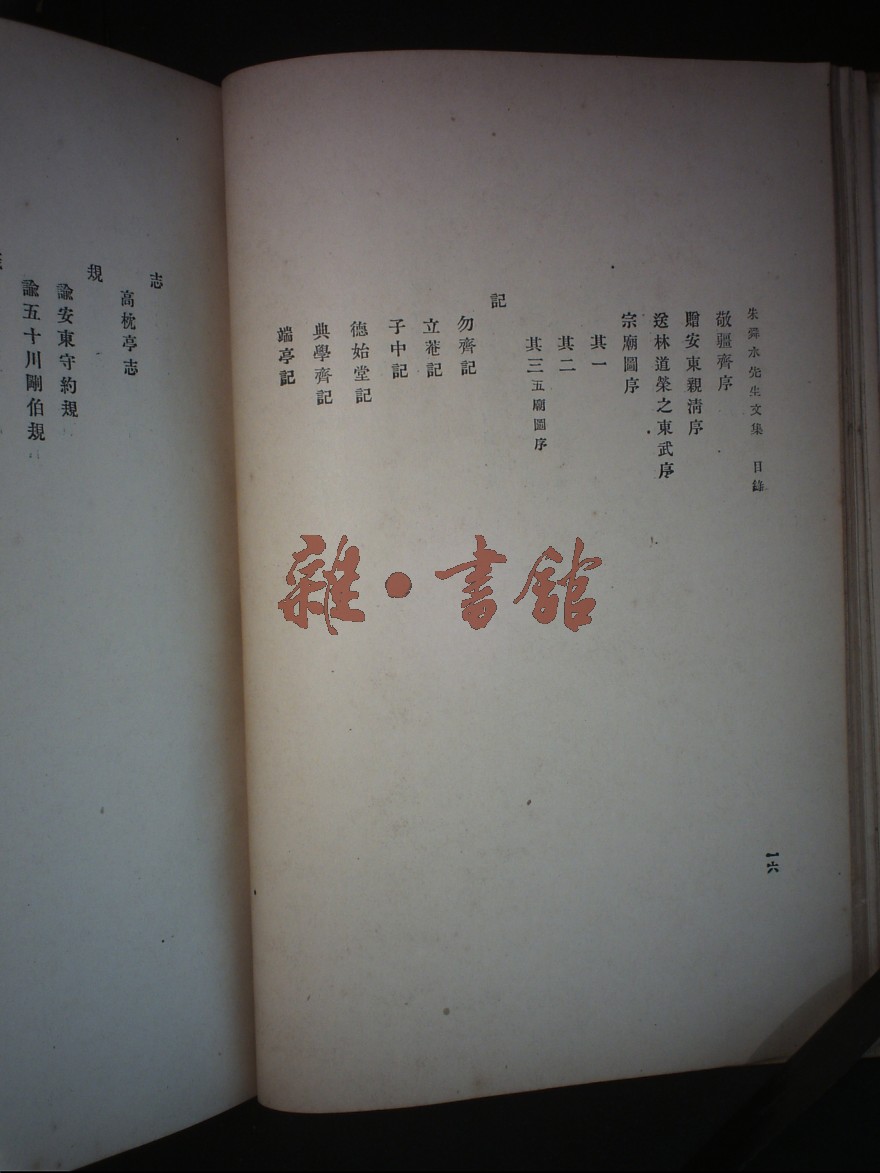 朱舜水先生文集　目錄
敬疆齊序
贈安東親清序
送林道榮之東武序
宗廟圖序
其一
其二
其三五廟圖序
記
勿齊記
立菴記
子中記
德始堂記
典學齊記
端亭記
一六
志
高枕亭志
規
諭安東守約規
諭五十川剛伯規
雜・書館